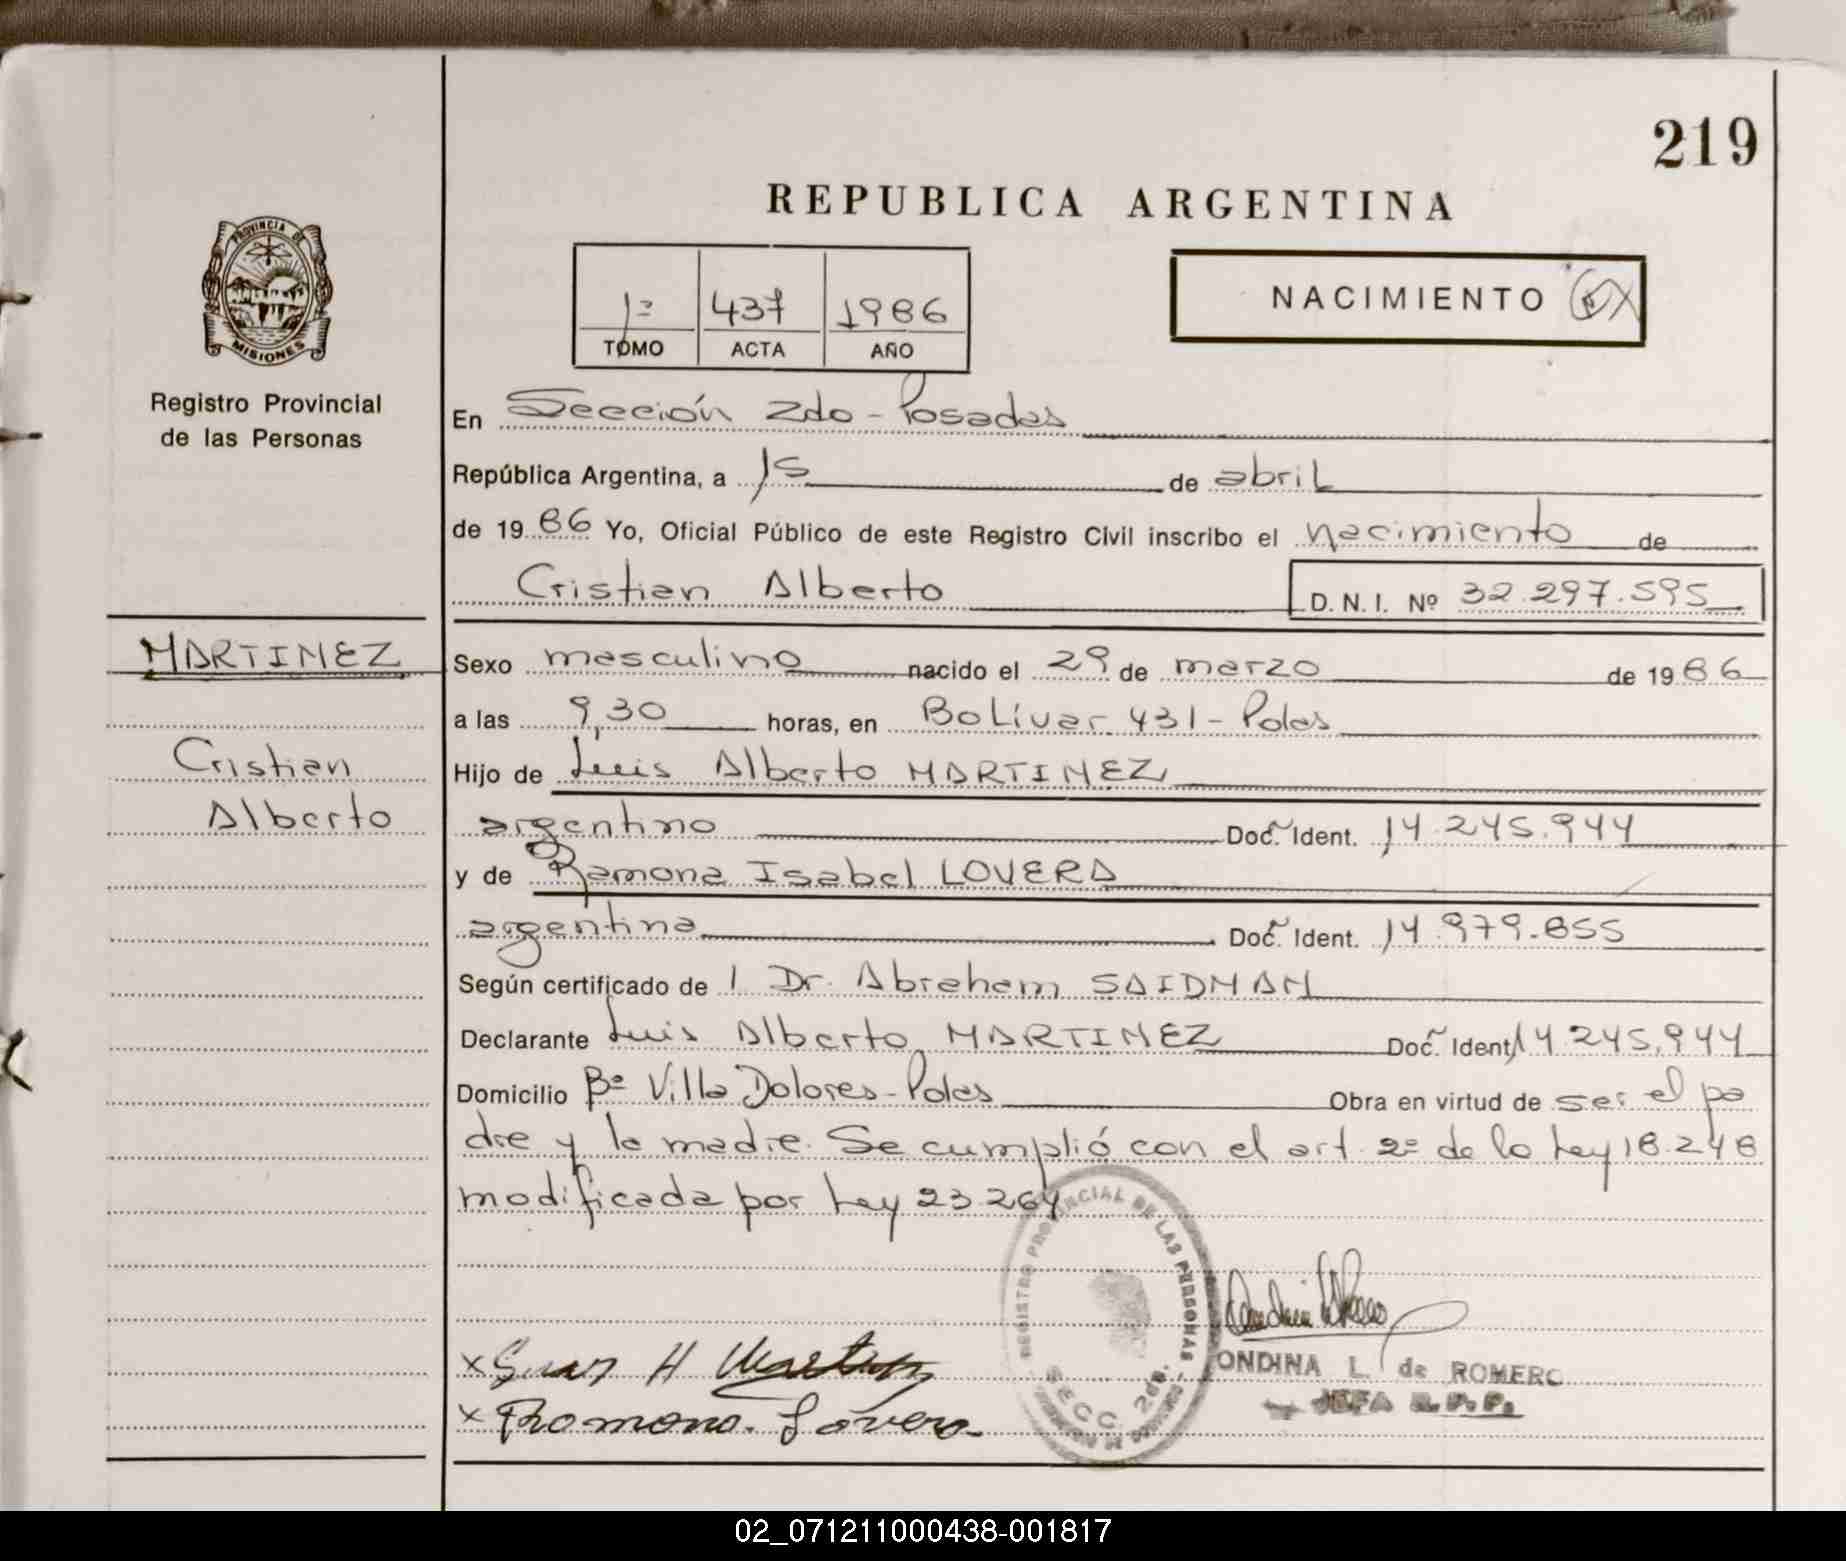 219
REPUBLICA ARGENTINA
PROVINCIA DE
MISIONES
Registro Provincial
de las Personas
1º 437 1986
TOMO ACTA AÑO
NACIMIENTO
En Sección 2da - Posadas
República Argentina, a 15 de abril
de 1986 Yo, Oficial Público de este Registro Civil inscribo el nacimiento de
Cristian Alberto D.N.I. Nº 32.297.595
MARTINEZ
Cristian
Alberto
Sexo masculino nacido el 29 de marzo de 1986
a las 9,30 horas, en Bolívar 431 - Pdas
Hijo de Luis Alberto MARTINEZ
argentino Doc. Ident. 14.245.944
y de Ramona Isabel LOVERA
argentina Doc. Ident. 14.979.855
Según certificado de l Dr. Abraham SAIDMAN
Declarante Luis Alberto MARTINEZ Doc. Ident. 14.245.944
Domicilio Bº Villa Dolores - Pdas Obra en virtud de ser el pa
dre y la madre. Se cumplió con el art. 2º de la Ley 18.248
modificada por Ley 23.264
REGISTRO PROVINCIAL DE LAS PERSONAS
SECC. 2da.
ONDINA L. de ROMERO
JEFA R.P.P.
x H Martinez
x Ramona Lovera
02_071211000438-001817